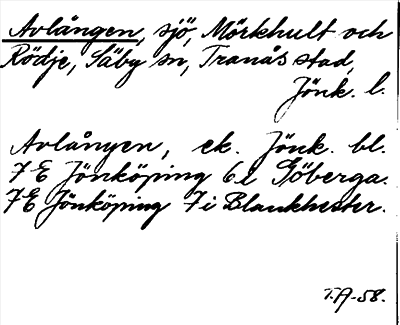 Avlången, sjö, Mörkhult och
Rödje, Säby sn, Tranås stad,
Jönk. l.
Avlången, ek. Jönk. bl.
7 E Jönköping 6 i Göberga.
7 E Jönköping 7 i Blankhester.
T.A-58.